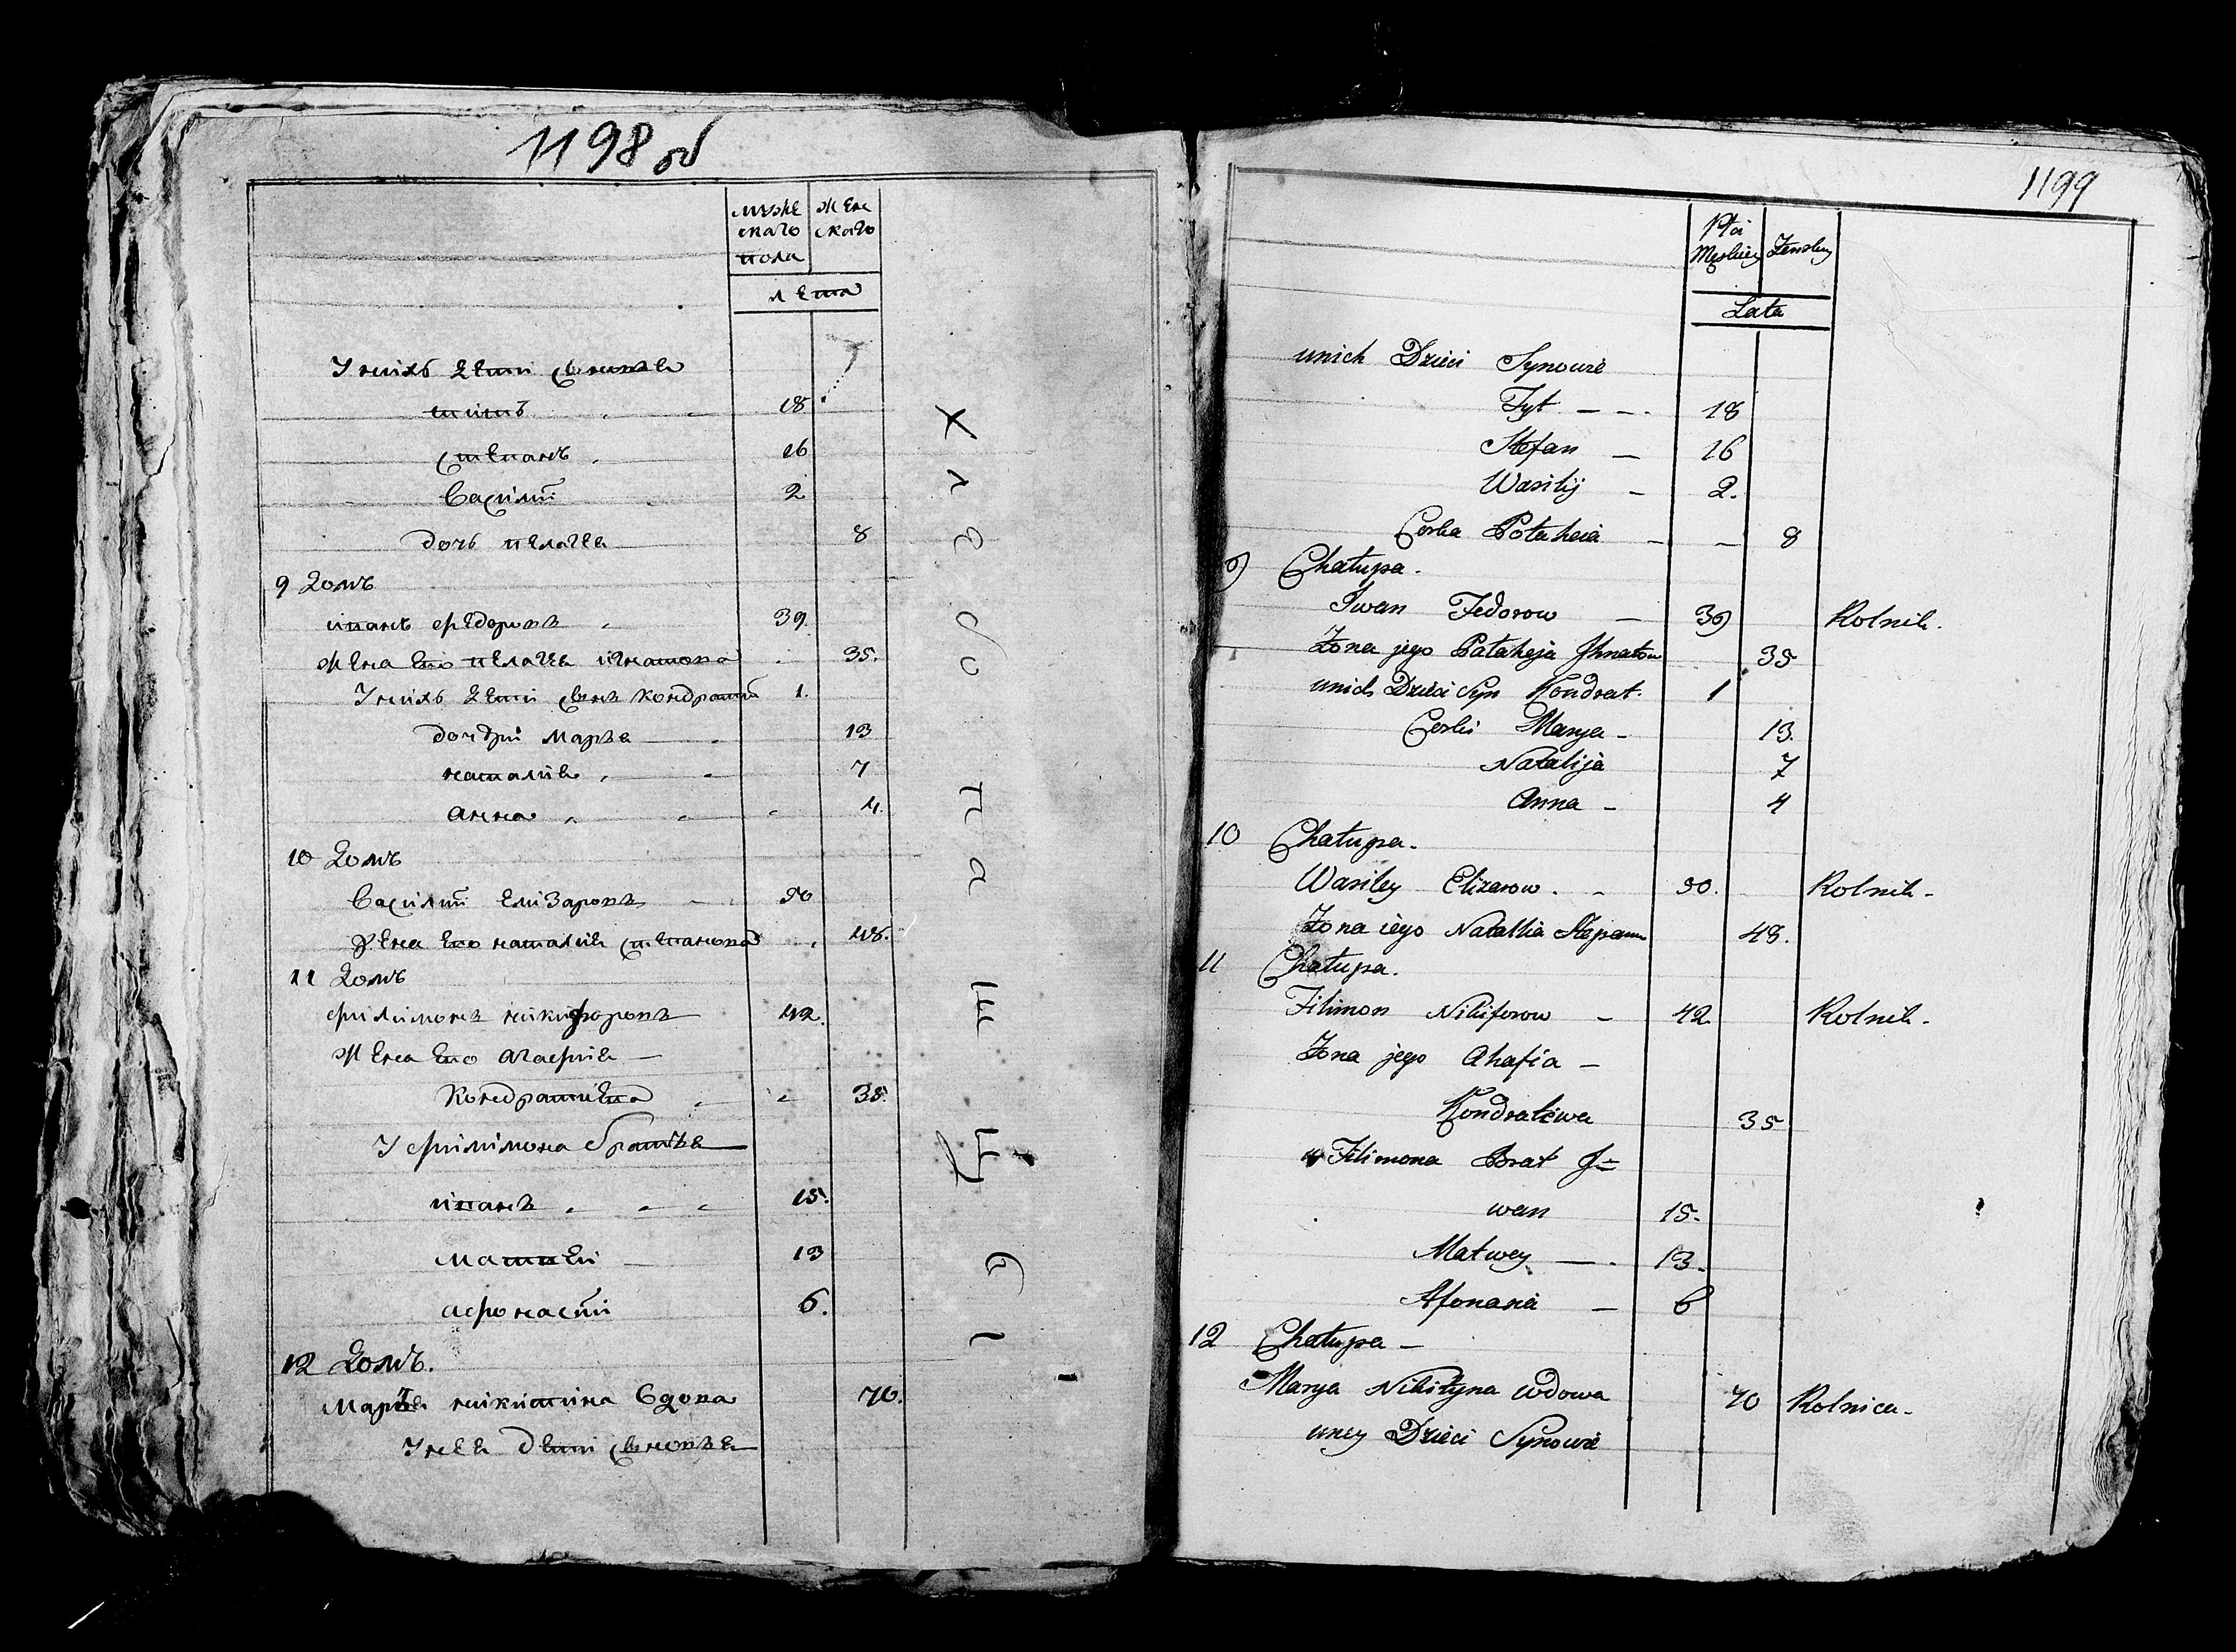 1198 об
муже женс
скаго скаго
пола
лета
У нихъ дети сыновья
титъ 18
степанъ 16
Василий 2
дочь пелагея 8
9 Домъ
иванъ федоровъ 39
жена ево пелагея игнатова 35.
У нихъ дети сынъ кондратий 1.
дочери марья 13
наталия 7
анна 4.
10 Домъ
Василий елизаровъ 50
жена ево наталия степанова 48.
11 Домъ
филимонъ никифоровъ 42.
жена ево агафия
Кондратиева 35.
У филимона братья
иванъ 15.
матвеи 13
афонасий 6.
12 Домъ.
Марья никитина вдова 70.
У нея дети сыновья
1199
Płci
Męskiey Żenskiey
Lata
u nich Dzieci Synowie
Tyt 18
Stefan 16
Wasilij 2.
Corka Połaheia 8
9 Chałupa.
Iwan Fedorow 39 Rolnik.
Żona jego Pałaheja Ihnatow 35
u nich Dzieci Syn Kondrat 1
Corki Marya 13.
Natalija 7
Anna 4
10 Chałupa.
Wasiley Elizarow. 50. Rolnik
Żona iego Natallia Stepanow 48.
11 Chałupa.
Filimon Nikiforow 42 Rolnik
Żona jego Ahafia
Kondratiewa 35
u Filimona Brat I=
wan 15.
Matwey 13.
Afonasia 6
12 Chałupa
Marya Nikityna wdowa 70 Rolnica
u ney Dzieci Synowie